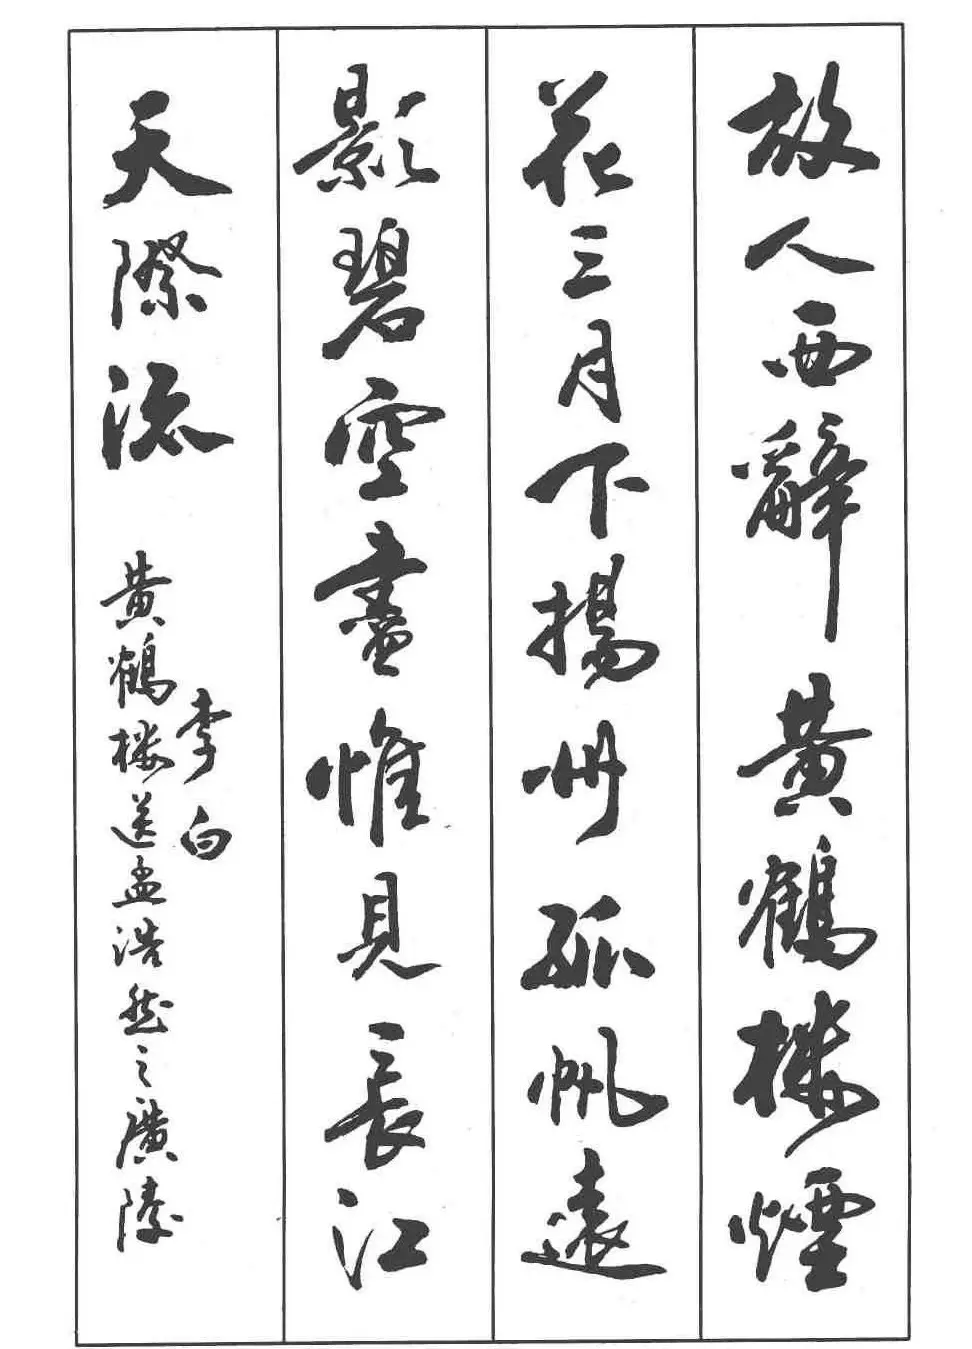 故人西辭黄鶴樓煙
花三月下揚州孤帆遠
影碧空盡惟見長江
天際流
李白
黄鶴樓送孟浩然之廣陵